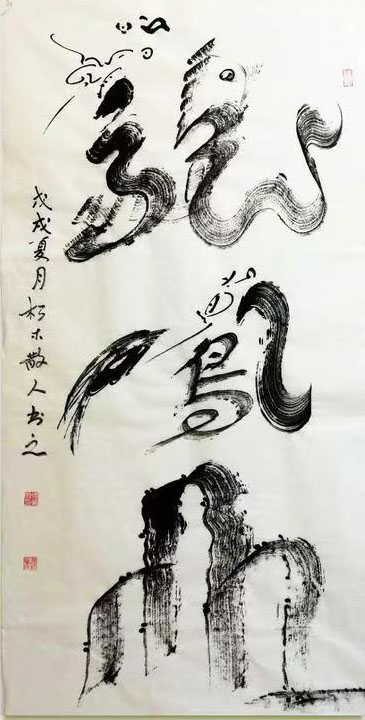 龍鳳山
戊戌夏月松木散人书之